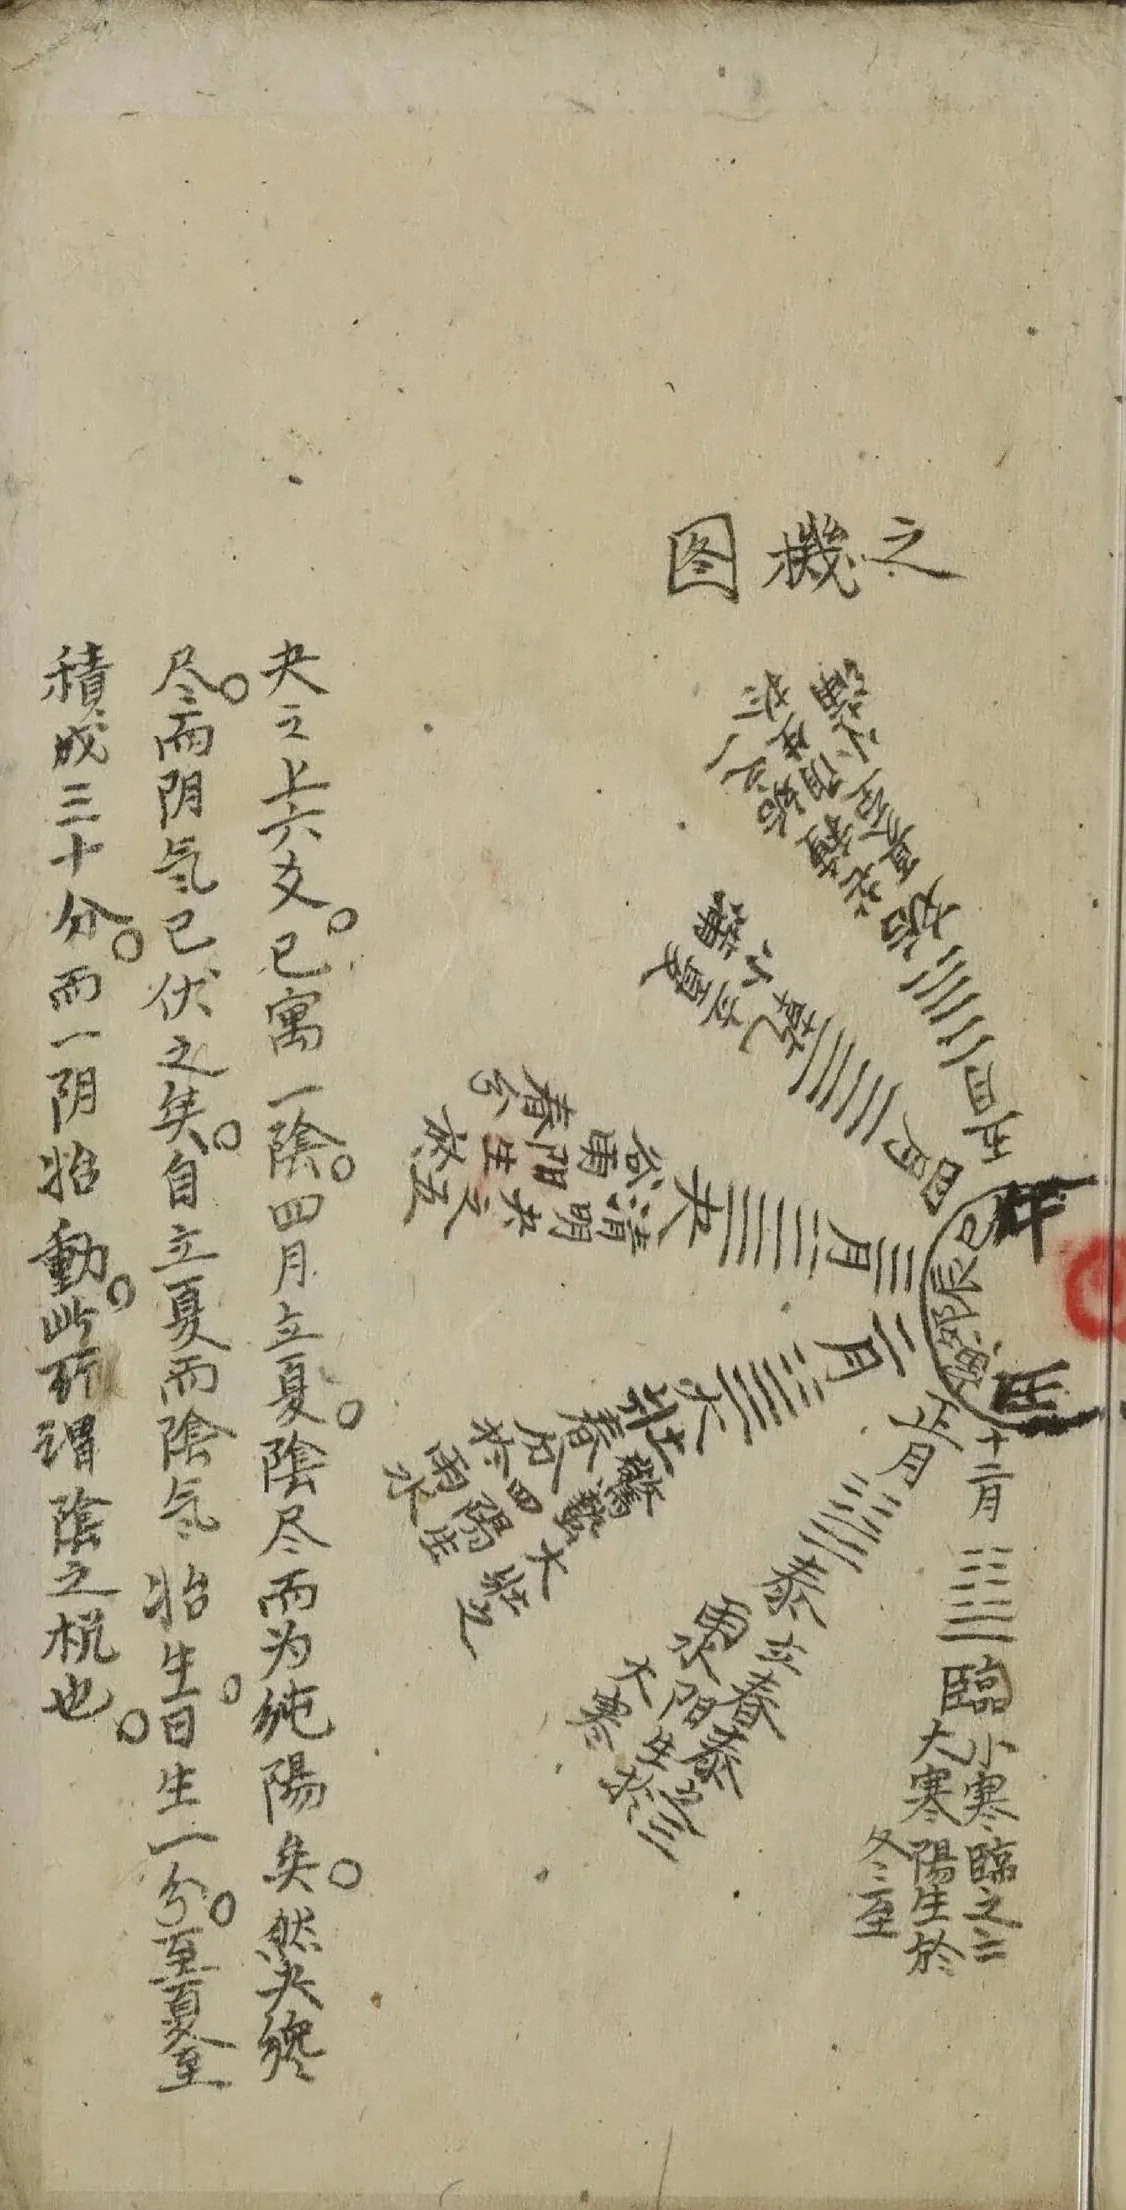 之機图
午
巳辰卯寅
丑
五月 姤 芒種 夏至
四月 乾 立夏 小滿
三月 夬 清明 谷雨 夬之五阳生於春分
二月 大壯 驚蟄 春分 大壯之四陽生於雨水
正月 泰 立春 雨水 泰之三阳生於大寒
十二月 臨 小寒 大寒 臨之二陽生於冬至
夬之上六爻。已寓一陰。四月立夏。陰尽而为纯陽矣。然夬纔
尽。而阴氣已伏之矣。自立夏而陰氣始生。日生一分。至夏至
積成三十分。而一阴始動。此所謂陰之机也。